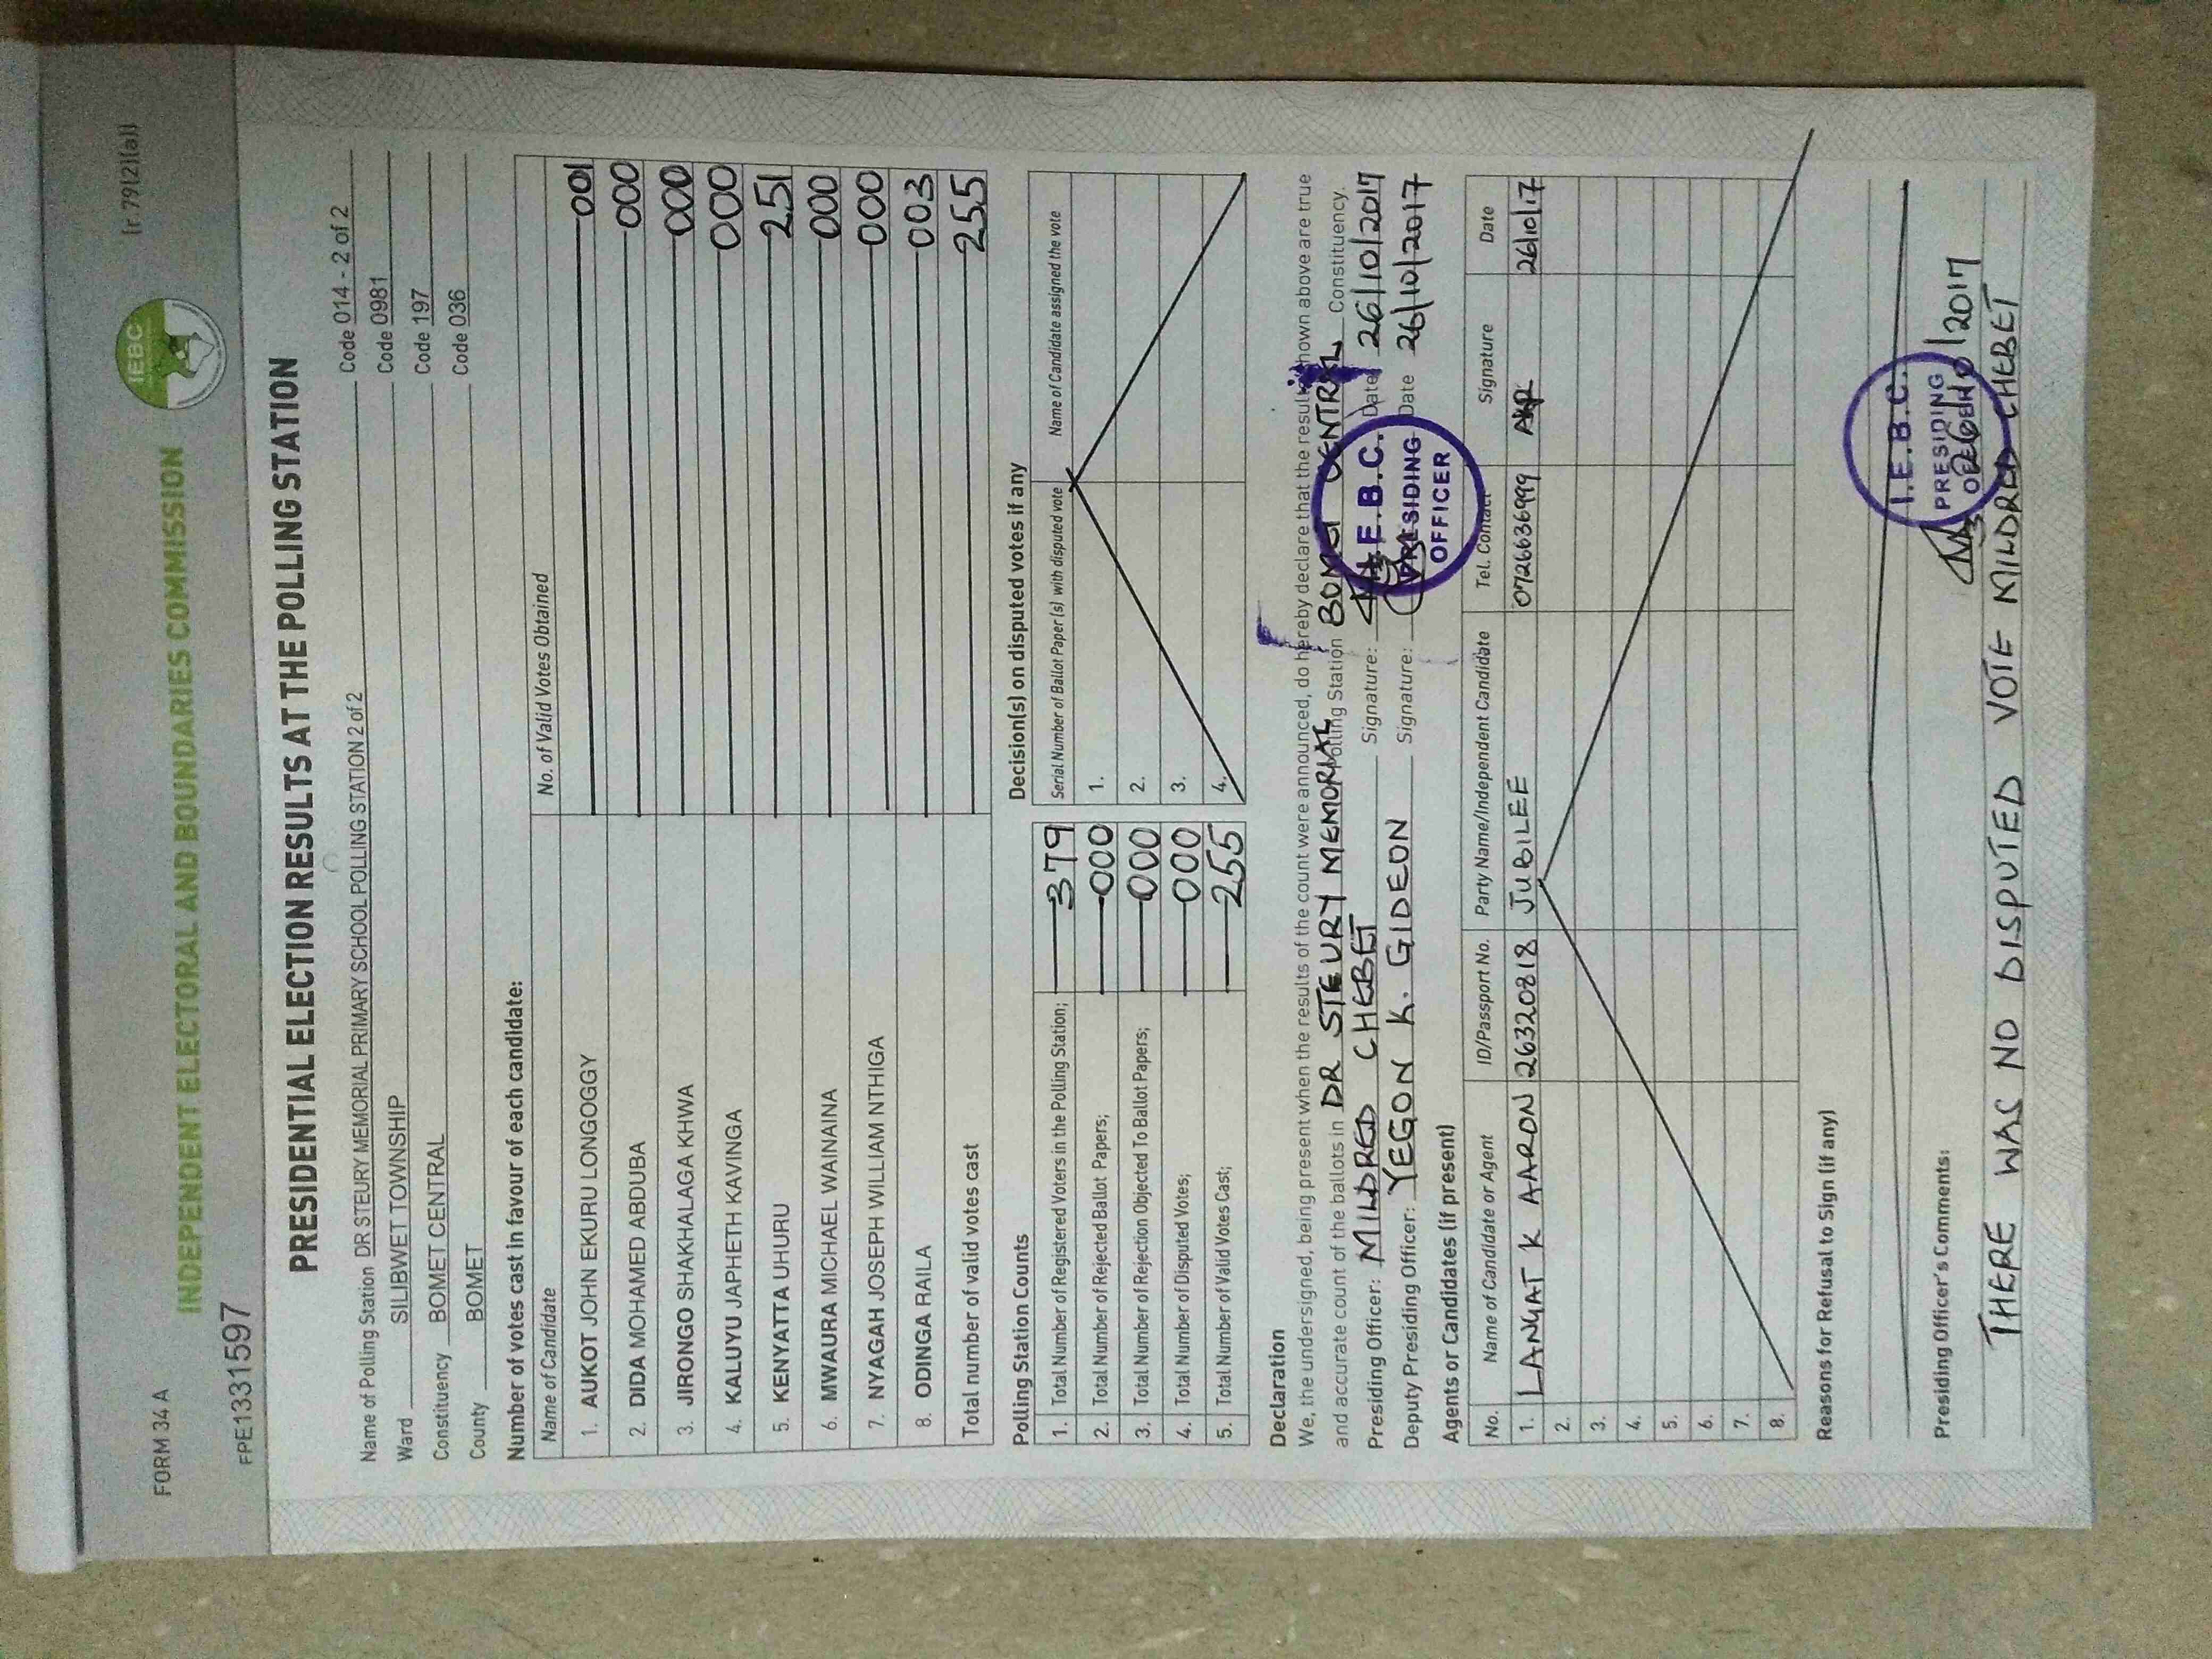 FORM 34 A
(r.79(2)(a))
IEBC
INDEPENDENT ELECTORAL AND BOUNDARIES COMMISSION
FPE1331597
PRESIDENTIAL ELECTION RESULTS AT THE POLLING STATION
Name of Polling Station DR STEURY MEMORIAL PRIMARY SCHOOL POLLING STATION 2 of 2 Code 014 - 2 of 2
Ward SILIBWET TOWNSHIP Code 0981
Constituency BOMET CENTRAL Code 197
County BOMET Code 036
Number of votes cast in favour of each candidate:
Name of Candidate No. of Valid Votes Obtained
1. AUKOT JOHN EKURU LONGOGGY 001
2. DIDA MOHAMED ABDUBA 000
3. JIRONGO SHAKHALAGA KHWA 000
4. KALUYU JAPHETH KAVINGA 000
5. KENYATTA UHURU 251
6. MWAURA MICHAEL WAINAINA 000
7. NYAGAH JOSEPH WILLIAM NTHIGA 000
8. ODINGA RAILA 003
Total number of valid votes cast 255
Polling Station Counts
1. Total Number of Registered Voters in the Polling Station; 379
2. Total Number of Rejected Ballot Papers; 000
3. Total Number of Rejection Objected To Ballot Papers; 000
4. Total Number of Disputed Votes; 000
5. Total Number of Valid Votes Cast; 255
Decision(s) on disputed votes if any
Serial Number of Ballot Paper (s) with disputed vote Name of Candidate assigned the vote
1.
2.
3.
4.
Declaration
We, the undersigned, being present when the results of the count were announced, do hereby declare that the results shown above are true
and accurate count of the ballots in DR STEURY MEMORIAL Polling Station BOMET CENTRAL Constituency.
Presiding Officer: MILDRED CHEBET Signature: Date 26/10/2017
Deputy Presiding Officer: YEGON K. GIDEON Signature: Date 26/10/2017
I.E.B.C.
PRESIDING
OFFICER
Agents or Candidates (if present)
No. Name of Candidate or Agent ID/Passport No. Party Name/Independent Candidate Tel. Contact Signature Date
1. LANGAT K AARON 26320818 JUBILEE 0726636999 26/10/17
2.
3.
4.
5.
6.
7.
8.
Reasons for Refusal to Sign (if any)
I.E.B.C.
PRESIDING
OFFICER
Presiding Officer's Comments:
26/10/2017
THERE WAS NO DISPUTED VOTE MILDRED CHEBET